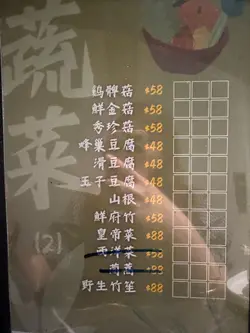 蔬菜
(2)
鷄髀菇 $58
鮮金菇 $58
秀珍菇 $58
蜂巢豆腐 $48
滑豆腐 $48
玉子豆腐 $48
山根 $48
鮮府竹 $58
皇帝菜 $88
西洋菜 $58
茼蒿 $88
野生竹笙 $88